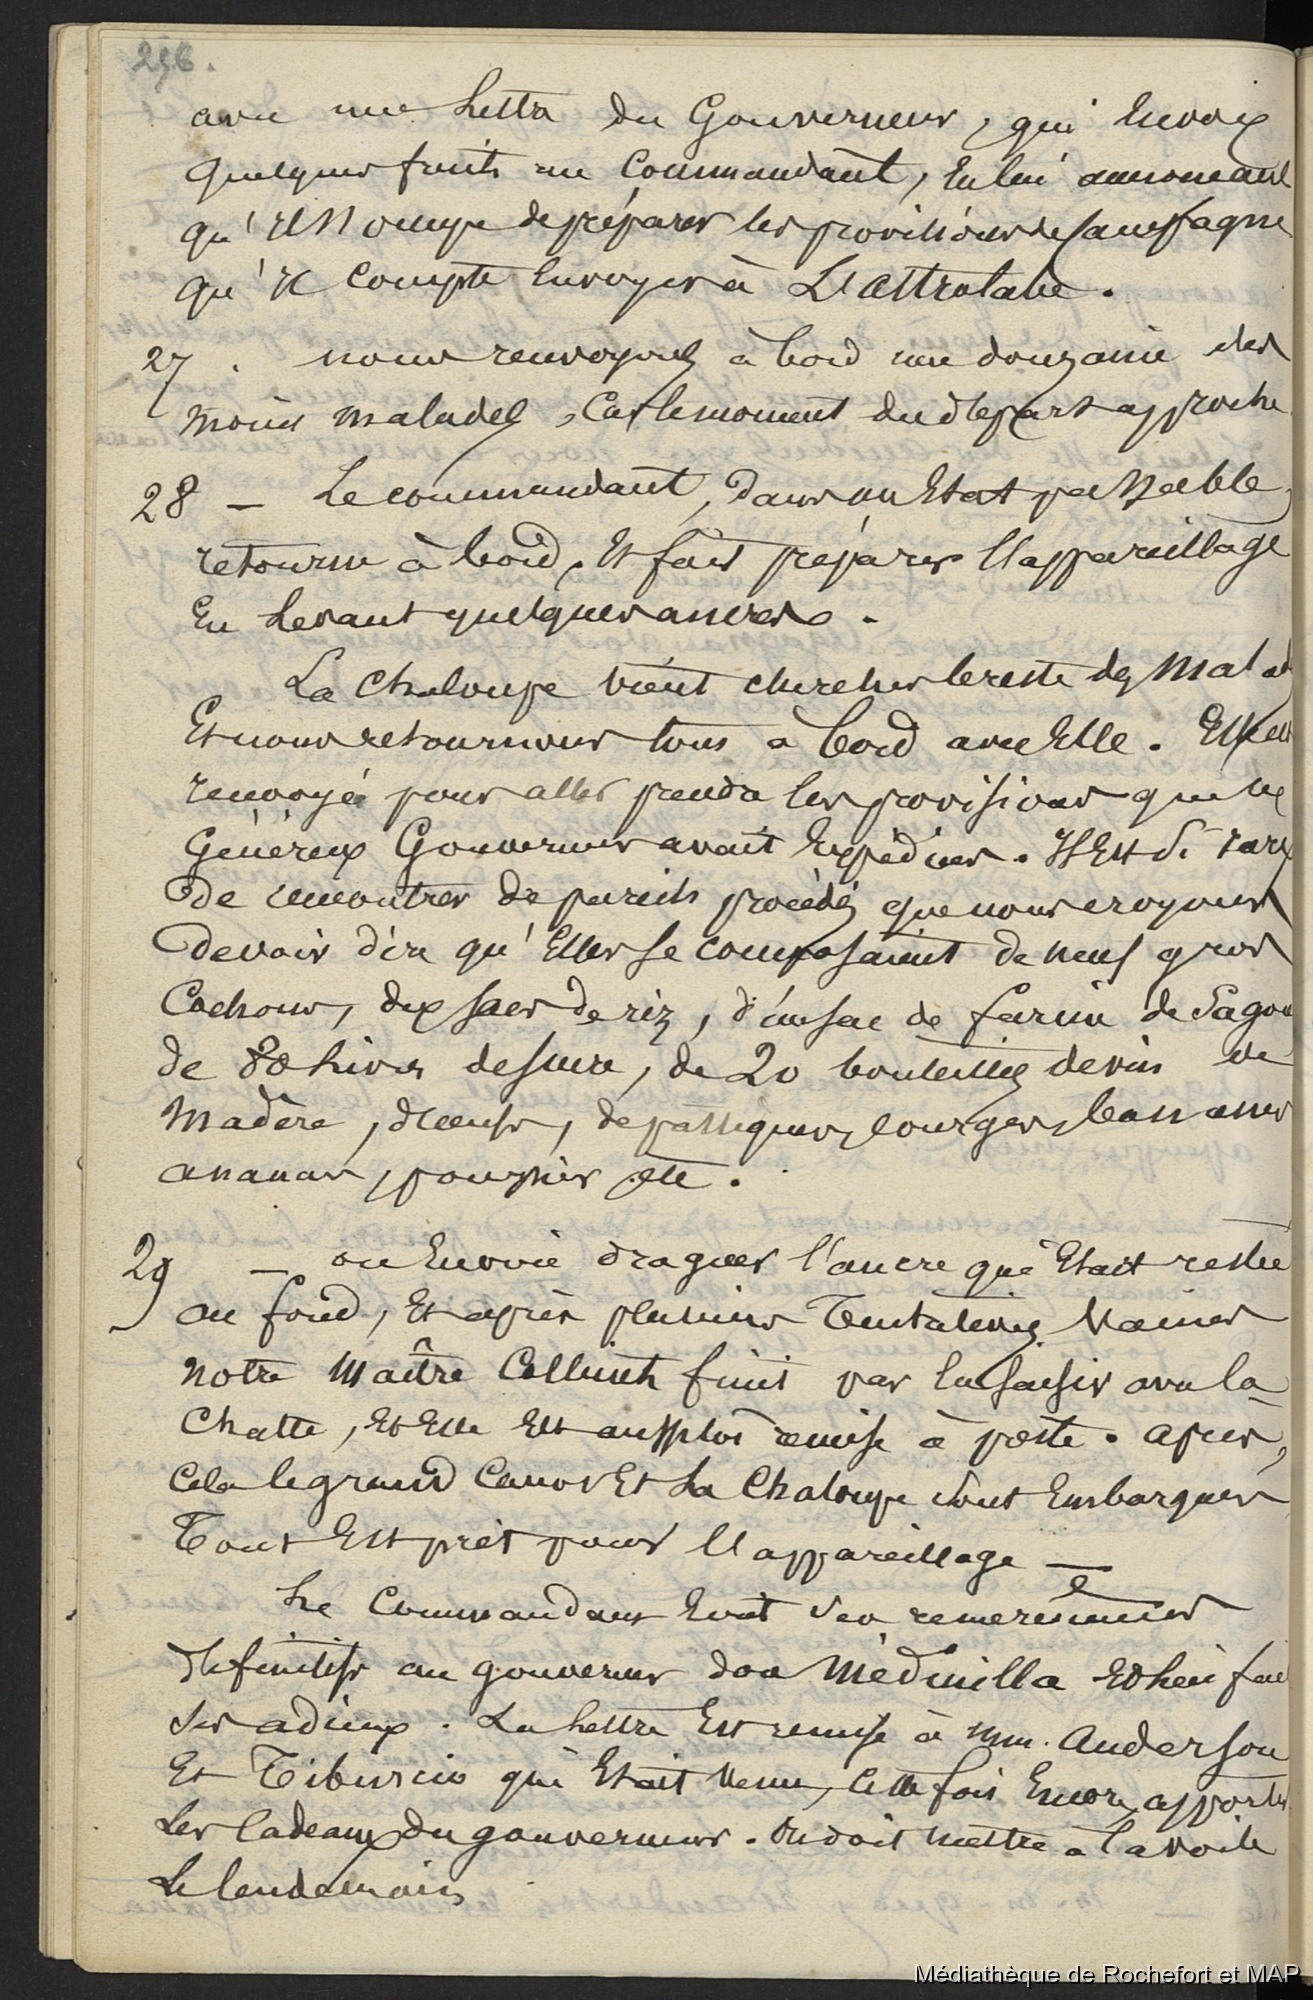 256.
avec une Lettre du Gouverneur, qui Envoie
quelques fruits au Commandant, En lui annonceant
qu'il s'occupe de préparer les provisions de campagne
qu'il compte Envoyer à L'Astrolabe.
27. nous renvoyons à bord une douzaine des
moins malades, car le moment du départ approche
28 — Le commandant, dans un Etat passable,
retourne à bord, Et fait préparer l'appareillage
En Levant quelques ancres.
La Chaloupe vient chercher le reste des malad
Et nous retournons tous à bord avec Elle. Elle est
renvoyée pour aller prendre les provisions que le
Généreux Gouverneur avait Expédiées. Il Est si rare
de rencontrer de pareils procédés que nous croyons
devoir dire qu'Elles se composaient de neuf gros
Cochons, dix sacs de riz, d'un sac de farine de Sagou
de 80 livres de sucre, de 20 bouteilles de vin de
Madère, d'oeufs, de pastèques, courges, bananes
ananas, poules etc.
29 — on Envoie draguer l'ancre qui Etait restée
au fond, Et après plusieurs Tentatives vaines
notre Maître Collinet finit par la saisir avec la
Chatte, Et Elle Est aussitôt remise à poste. après
cela le grand Canot Et La Chaloupe sont Embarqués
Tout Est prêt pour l'appareillage —
Le Commandant Ecrit ses remerciements
définitifs au gouverneur don Médinilla Et lui fait
ses adieux. La Lettre Est remise à Mm. Anderson
Et Tiburcio qui Etait venu, cette fois Encore, apporter
Les Cadeaux du gouverneur. On doit mettre à la voile
Le lendemain
Médiathèque de Rochefort et MAP